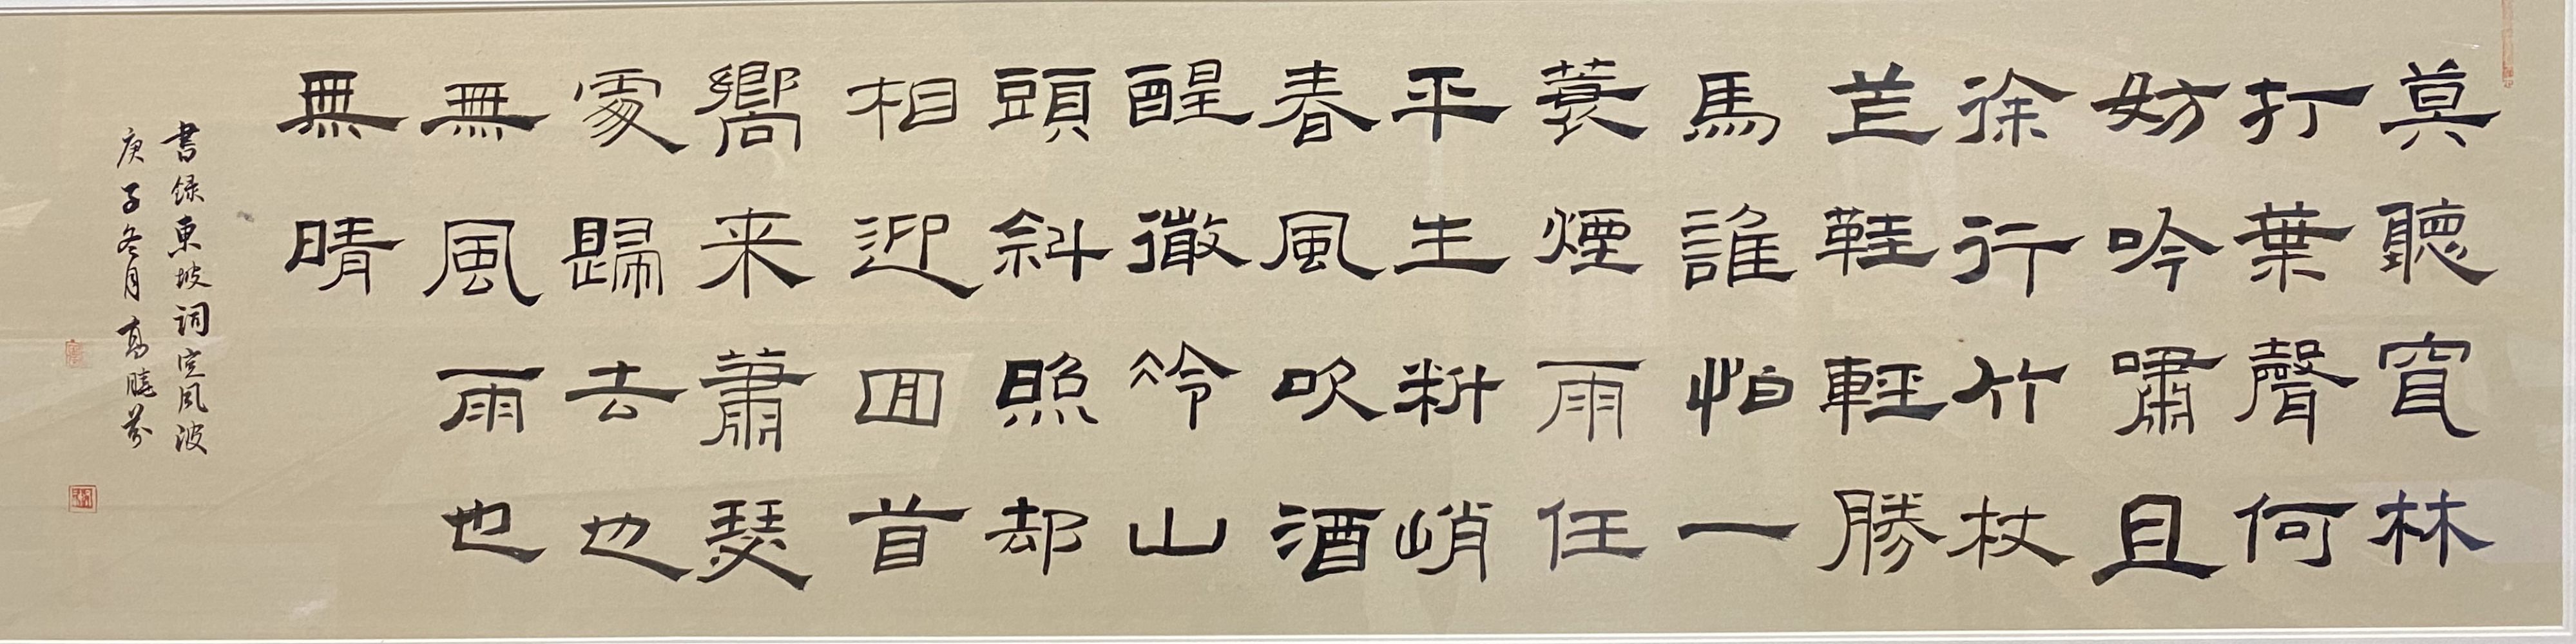 莫聽穿林
打葉聲何
妨吟嘯且
徐行竹杖
芒鞋輕勝
馬誰怕一
蓑煙雨任
平生料峭
春風吹酒
醒微冷山
頭斜照却
相迎囬首
嚮来蕭瑟
處歸去也
無風雨也
無晴
書録東坡詞定風波
庚子冬月高曉芬